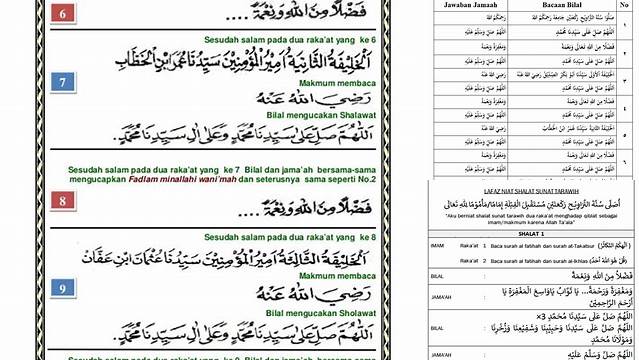 6
فَضْلًا مِنَ اللهِ وَنِعْمَةً ....
Sesudah salam pada dua raka'at yang ke 6
7
اَلْخَلِيْفَةُ الثَّانِيَةُ اَمِيْرُ الْمُؤْمِنِيْنَ سَيِّدُنَا عُمَرُ ابْنُ الْخَطَّابِ
Makmum membaca
رَضِيَ اللهُ عَنْهُ
Bilal mengucakan Shalawat
اَللّٰهُمَّ صَلِّ عَلَى سَيِّدِنَا مُحَمَّدٍ وَعَلَى اٰلِ سَيِّدِنَا مُحَمَّدٍ.
Sesudah salam pada dua raka'at yang ke 7 Bilal dan jama'ah bersama-sama
mengucapkan Fadlam minallahi wani'mah dan seterusnya sama seperti No.2
8
فَضْلًا مِنَ اللهِ وَنِعْمَةً ....
Sesudah salam pada dua raka'at yang ke 8
اَلْخَلِيْفَةُ الثَّالِثَةُ اَمِيْرُ الْمُؤْمِنِيْنَ سَيِّدُنَا عُثْمَانُ ابْنُ عَفَّانَ
Makmum membaca
9
رَضِيَ اللهُ عَنْهُ
Bilal mengucakan Sholawat
اَللّٰهُمَّ صَلِّ عَلَى سَيِّدِنَا مُحَمَّدٍ وَعَلَى اٰلِ سَيِّدِنَا مُحَمَّدٍ.
Jawaban Jamaah Bacaan Bilal No
رَحِمَكُمُ اللهُ صَلُّوا سُنَّةَ التَّرَاوِيْحِ رَكْعَتَيْنِ جَامِعَةً رَحِمَكُمُ اللهُ ١
اللّٰهُمَّ صَلِّ وَسَلِّمْ عَلَيْهِ اللّٰهُمَّ صَلِّ عَلَى سَيِّدِنَا مُحَمَّدٍ
وَمَغْفِرَةً وَنِعْمَةً فَضْلًا مِنَ اللهِ وَنِعْمَةً ٢
اللّٰهُمَّ صَلِّ وَسَلِّمْ عَلَيْهِ اللّٰهُمَّ صَلِّ عَلَى سَيِّدِنَا مُحَمَّدٍ
رَضِيَ اللهُ عَنْهُ ٣
اللّٰهُمَّ صَلِّ وَسَلِّمْ عَلَيْهِ اللّٰهُمَّ صَلِّ عَلَى سَيِّدِنَا مُحَمَّدٍ
فَضْلًا مِنَ اللهِ وَنِعْمَةً ٤
اللّٰهُمَّ صَلِّ وَسَلِّمْ عَلَيْهِ اللّٰهُمَّ صَلِّ عَلَى سَيِّدِنَا مُحَمَّدٍ
٥
اللّٰهُمَّ صَلِّ وَسَلِّمْ عَلَيْهِ اللّٰهُمَّ صَلِّ عَلَى سَيِّدِنَا مُحَمَّدٍ
فَضْلًا مِنَ اللهِ وَنِعْمَةً ٦
LAFAZ NIAT SHALAT SUNAT TARAWIH
أُصَلِّى سُنَّةَ التَّرَاوِيْحِ رَكْعَتَيْنِ مُسْتَقْبِلَ الْقِبْلَةِ إِمَامًا/مَأْمُوْمًا لِلّٰهِ تَعَالَى
"Aku berniat shalat sunat tarawih dua raka'at menghadap qiblat sebagai
imam/makmum karena Allah Ta'ala"
SHALAT 1
IMAM Raka'at 1 Baca surah al fatihah dan surah at-Takatsur (أَلْهٰكُمُ التَّكَاثُرُ)
Raka'at 2 Baca surah al fatihah dan surah al-Ikhlas (قُلْ هُوَ اللهُ أَحَدٌ)
BILAL : فَضْلًا مِنَ اللهِ وَنِعْمَةً
JAMA'AH : وَمَغْفِرَةً وَرَحْمَةً... يَا تَوَّابُ يَاوَاسِعَ الْمَغْفِرَةِ يَا
أَرْحَمَ الرَّاحِمِيْنَ
BILAL : اللّٰهُمَّ صَلِّ عَلَى سَيِّدِنَا مُحَمَّدٍ ×3
اللّٰهُمَّ صَلِّ عَلَى سَيِّدِنَا وَحَبِيْبِنَا وَشَفِيْعِنَا وَذُخْرِنَا
وَمَوْلَانَا مُحَمَّدٍ
JAMA'AH : صَلِّ وَسَلِّمْ عَلَيْهِ